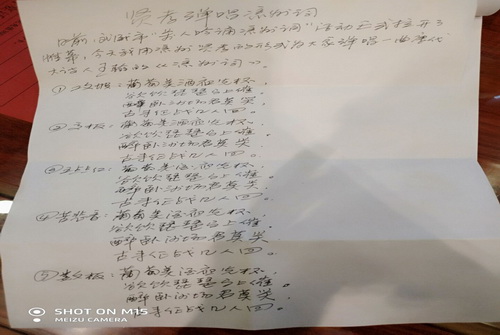 贤孝弹唱凉州词
日前,武威市"万人吟诵凉州词"活动正式拉开了
帷幕,今天我用凉州贤孝的形式为大家弹唱一曲唐代
大诗人王翰的《凉州词》。
葡萄美酒夜光杯,
欲饮琵琶马上催,
醉卧沙场君莫笑,
古来征战几人回。
葡萄美酒夜光杯,
欲饮琵琶马上催,
醉卧沙场君莫笑,
古来征战几人回。
葡萄美酒夜光杯,
欲饮琵琶马上催,
醉卧沙场君莫笑,
古来征战几人回。
葡萄美酒夜光杯,
欲饮琵琶马上催,
醉卧沙场君莫笑,
古来征战几人回。
葡萄美酒夜光杯,
欲饮琵琶马上催,
醉卧沙场君莫笑,
古来征战几人回。
SHOT ON M15
MEIZU CAMERA